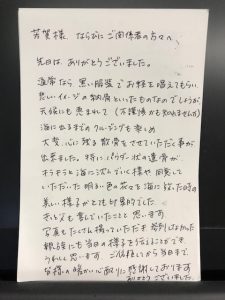 芳賀様、ならびにご関係者の方々へ
先日は、ありがとうございました。
通常なら黒い服装でお経を唱えてもらい
悲しいイメージの納骨といったものなのでしょうが
天候にも恵まれて(不謹慎かも知れませんが)
海に出るまでのクルージングも楽しめ
大変、心に残る散骨をさせていただく事が
出来ました。特にパウダー状の遺骨が
キラキラと海に沈んでいく様や同覧して
いただいた明るい色の花々を海に放った時の
美しい様子がとても印象的でした。
きっと父も喜んでいたことと思います。
写真もたくさん撮っていただき参列しなかった
親族にも当日の様子を伝えることができ、
うれしく思います。ご依頼してから当日まで、
皆様の暖かい心配りに感謝しております
ありがとうございました。